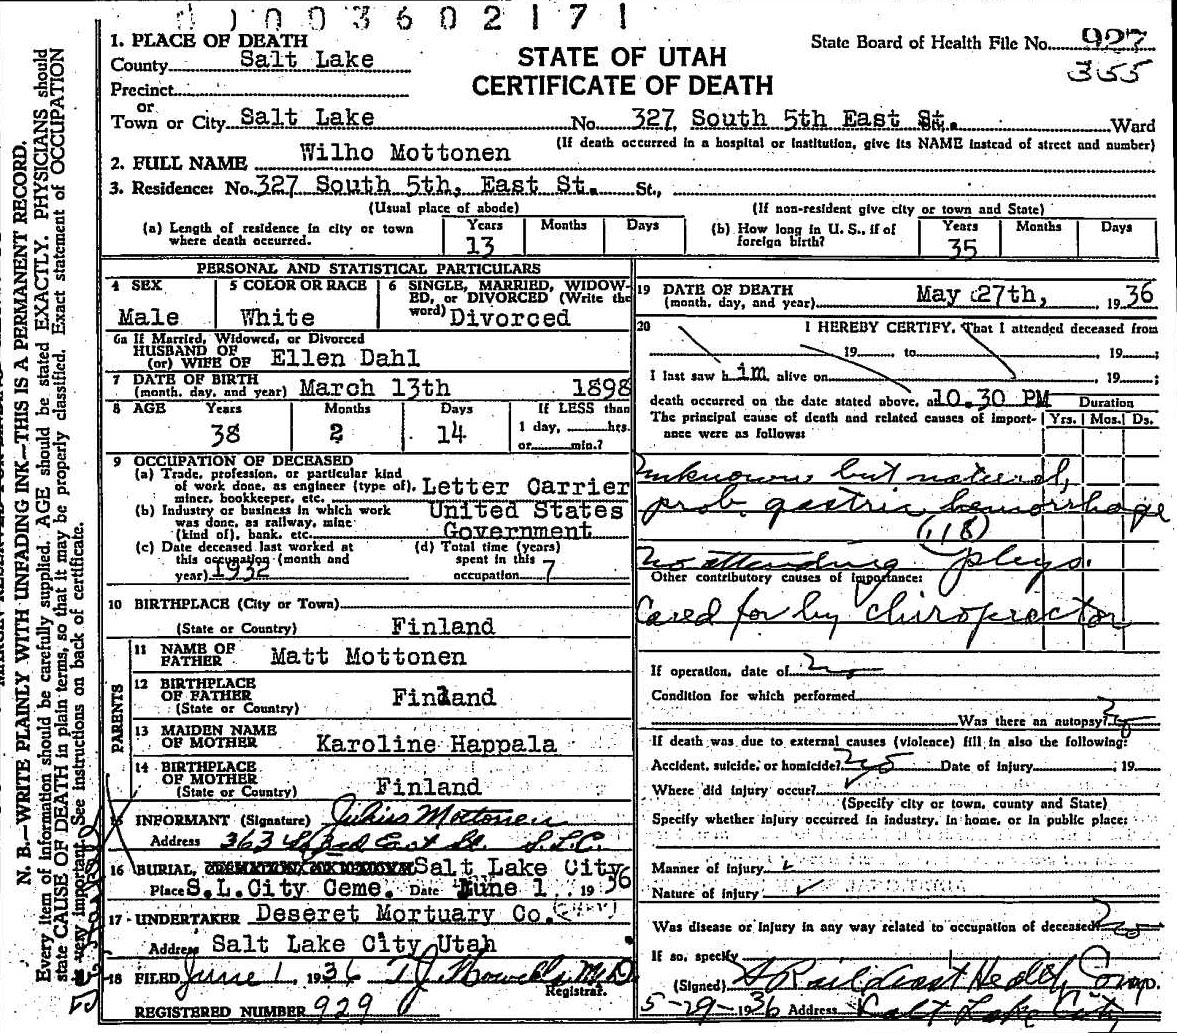 0 0 3 6 0 2 1 7 1
1. PLACE OF DEATH
County Salt Lake
Precinct
or
Town or City Salt Lake No. 327 South 5th East St. Ward
STATE OF UTAH
CERTIFICATE OF DEATH
State Board of Health File No. 927
355
(If death occurred in a hospital or institution, give its NAME instead of street and number)
2. FULL NAME Wilho Mottonen
3. Residence: No. 327 South 5th, East St. St.,
(Usual place of abode) (If non-resident give city or town and State)
(a) Length of residence in city or town where death occurred. Years 13 Months Days
(b) How long in U. S., if of foreign birth? Years 35 Months Days
PERSONAL AND STATISTICAL PARTICULARS
4 SEX Male
5 COLOR OR RACE White
6 SINGLE, MARRIED, WIDOW-
ED, or DIVORCED (Write the
word) Divorced
6a If Married, Widowed, or Divorced
HUSBAND OF
(or) WIFE OF Ellen Dahl
7 DATE OF BIRTH
(month, day, and year) March 13th 1898
8 AGE Years Months Days If LESS than
38 2 14 1 day, hrs.
or min.?
9 OCCUPATION OF DECEASED
(a) Trade, profession, or particular kind
of work done, as engineer (type of),
miner, bookkeeper, etc. Letter Carrier
(b) Industry or business in which work
was done, as railway, mine
(kind of), bank, etc. United States
Government
(c) Date deceased last worked at
this occupation (month and
year) 1932
(d) Total time (years)
spent in this
occupation 7
10 BIRTHPLACE (City or Town)
(State or Country) Finland
PARENTS
11 NAME OF
FATHER Matt Mottonen
12 BIRTHPLACE
OF FATHER
(State or Country) Finland
13 MAIDEN NAME
OF MOTHER Karoline Happala
14 BIRTHPLACE
OF MOTHER
(State or Country) Finland
15 INFORMANT (Signature) Julius Mottonen
Address 363 So 3rd East St. S.L.C.
16 BURIAL, CREMATION OR REMOVAL Salt Lake City
Place S.L.City Ceme. Date June 1 1936
17 UNDERTAKER Deseret Mortuary Co.
Address Salt Lake City Utah
18 FILED June 1, 1936 T J Howells M.D
Registrar.
REGISTERED NUMBER 929
19 DATE OF DEATH
(month, day, and year) May 27th, 1936
20 I HEREBY CERTIFY, That I attended deceased from
19 to , 19 ;
I last saw him alive on , 19 ;
death occurred on the date stated above, at 10.30 PM
The principal cause of death and related causes of import-
ance were as follows:
Duration
Yrs. Mos. Ds.
Unknown but natural,
prob. gastric hemorrhage
(118)
No attending phys.
Other contributory causes of importance:
Cared for by chiropractor
If operation, date of no
Condition for which performed
Was there an autopsy? no
If death was due to external causes (violence) fill in also the following:
Accident, suicide, or homicide? no Date of injury , 19
Where did injury occur?
(Specify city or town, county and State)
Specify whether injury occurred in industry, in home, or in public place:
Manner of injury
Nature of injury
Was disease or injury in any way related to occupation of deceased? no
If so, specify
(Signed) Health Comp.
5-29-1936 Address Salt Lake City
N. B.—WRITE PLAINLY WITH UNFADING INK—THIS IS A PERMANENT RECORD.
Every item of information should be carefully supplied. AGE should be stated EXACTLY. PHYSICIANS should
state CAUSE OF DEATH in plain terms, so that it may be properly classified. Exact statement of OCCUPATION
is very important. See instructions on back of certificate.